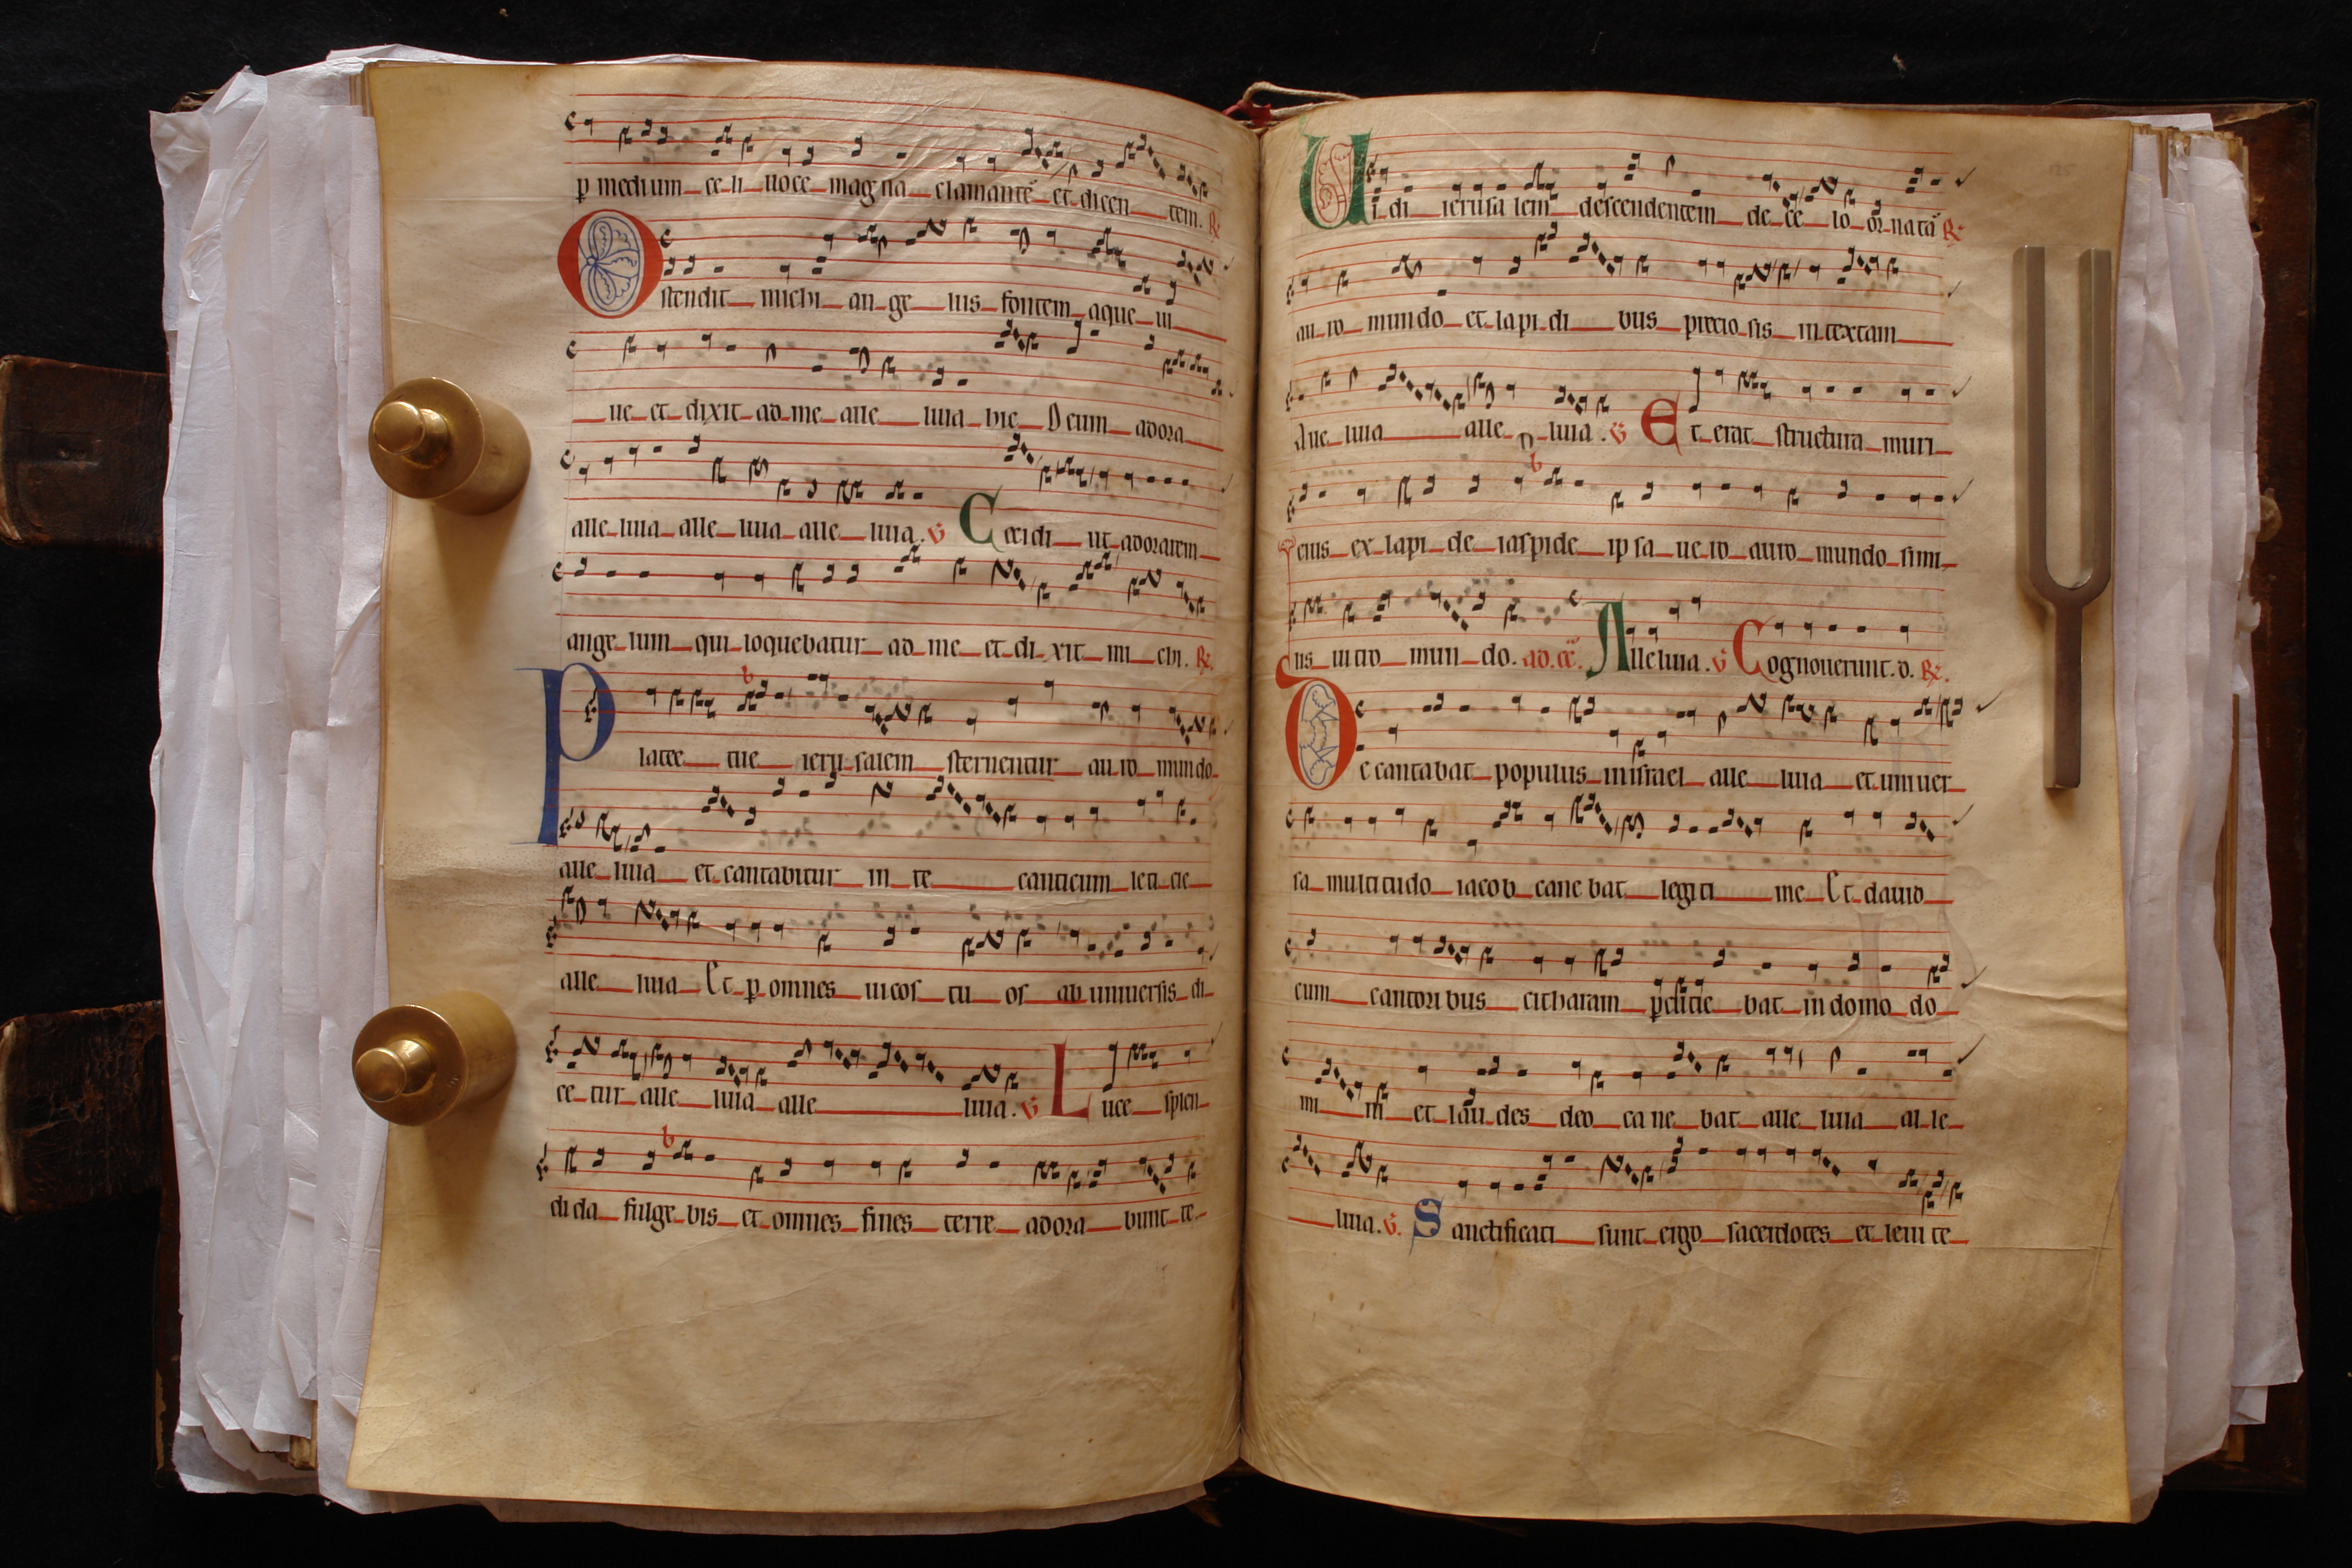 p medium celi uoce magna clamante et dicentem. R.
Ostendit michi angelus fontem aque ui
ue et dixit ad me alleluia hic Deum adora
alleluia alleluia alleluia. V Cecidi ut adorarem
angelum qui loquebatur ad me et dixit michi. R.
Platee tue ierusalem sternentur auro mundo
alleluia et cantabitur in te canticum leticie
alleluia Et p omnes uicos tuos ab uniuersis di
cetur alleluia alleluia. V Luce splen
dida fulgebis et omnes fines terre adorabunt te
Uidi ierusalem descendentem de celo ornata R
auro mundo et lapidibus preciosis intextam
Alleluia alleluia. V Et erat structura muri
eius ex lapide iaspide ipsa uero auro mundo simi
lis uitro mundo. ad. ce. Alleluia. V Cognouerunt. d. R.
Decantabat populus in israel alleluia et uniuer
sa multitudo iacob canebat legitime Et dauid
cum cantoribus citharam pcutiebat in domo do
mini et laudes deo canebat alleluia alle
luia. V. Sanctificati sunt ergo sacerdotes et leuite